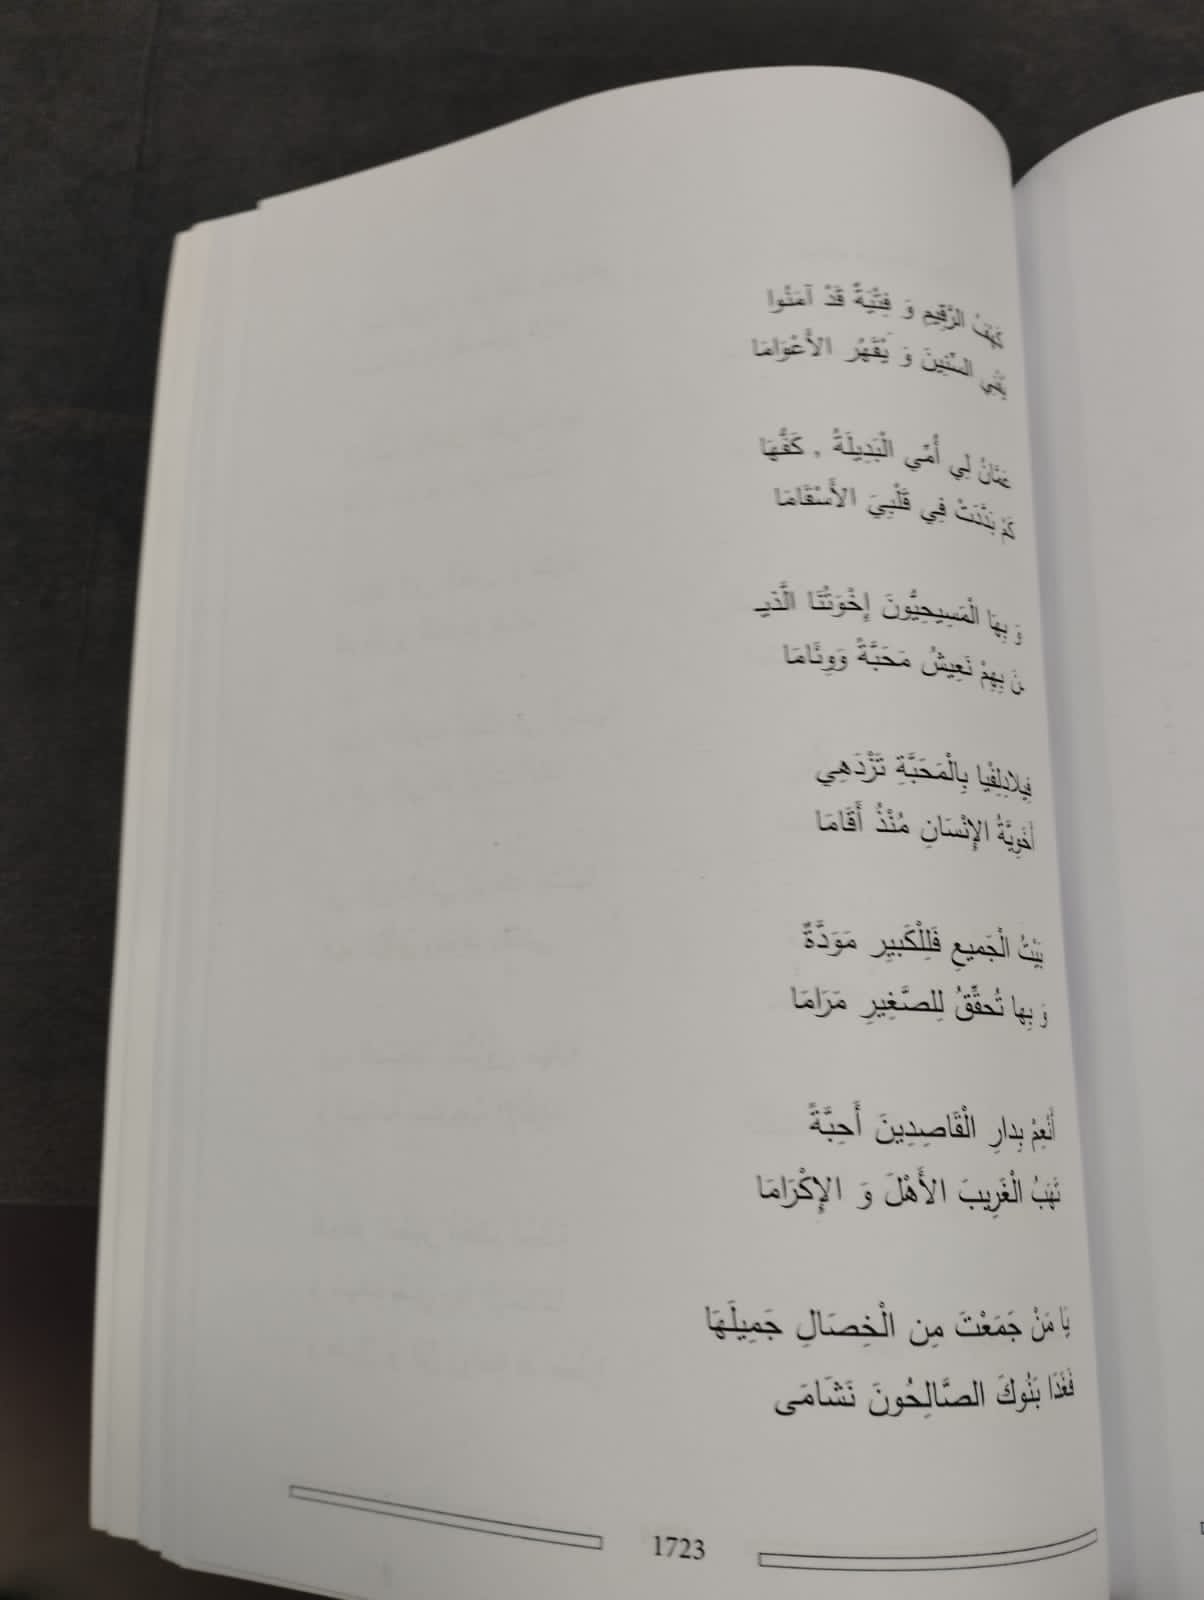 كَهْفُ الرَّقِيمِ وَ فِتْيَةٌ قَدْ آمَنُوا
يُفْنِي السِّنِينَ وَ يَقْهَرُ الأَعْوَامَا
عَمَّانُ لِي أُمِّي الْبَدِيلَةُ , كَفُّهَا
كَمْ بَدَّدَتْ فِي قَلْبِيَ الأَسْقَامَا
وَ بِهَا الْمَسِيحِيُّونَ إِخْوَتُنَا الَّذِيـ
ـنَ بِهِمْ نَعِيشُ مَحَبَّةً وَوِئَامَا
فِيلادِلِفْيا بِالْمَحَبَّةِ تَزْدَهِي
أَخَوِيَّةُ الإِنْسَانِ مُنْذُ أَقَامَا
بَيْتُ الْجَمِيعِ فَلِلْكَبِيرِ مَوَدَّةٌ
وَ بِها تُحَقِّقُ لِلصَّغِيرِ مَرَامَا
أَنْعِمْ بِدارِ الْقَاصِدِينَ أَحِبَّةً
تَهَبُ الْغَرِيبَ الأَهْلَ وَ الإِكْرَامَا
يَا مَنْ جَمَعْتَ مِن الْخِصَالِ جَمِيلَهَا
فَغَدَا بَنُوكَ الصَّالِحُونَ نَشَامَى
1723